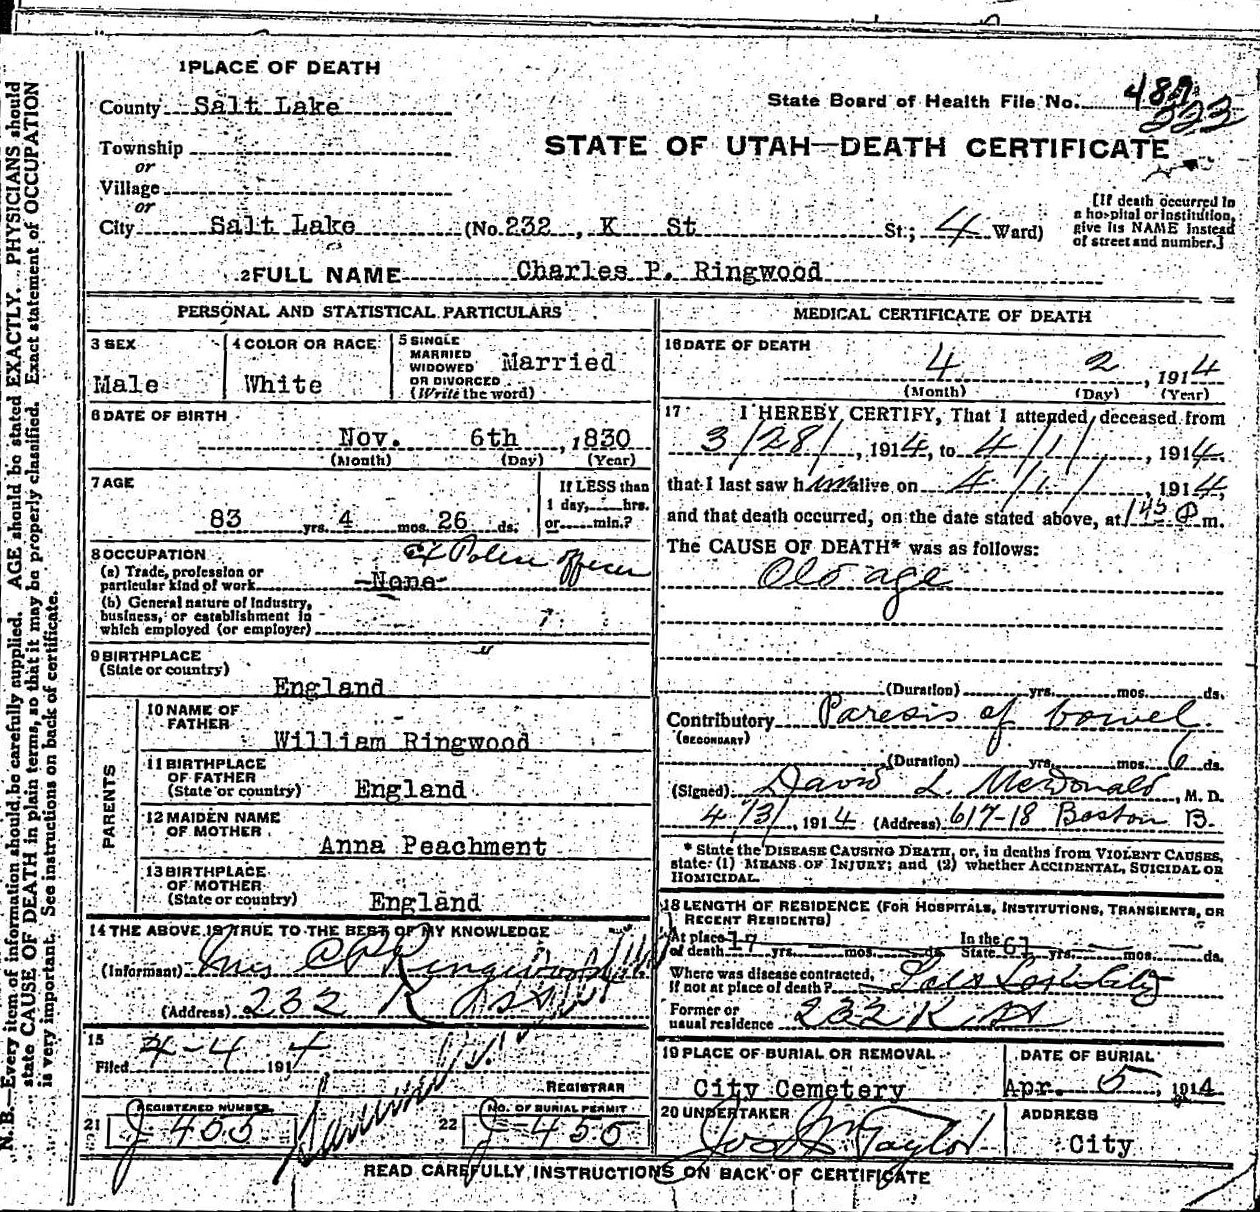 1 PLACE OF DEATH
County Salt Lake
State Board of Health File No. 487
223
Township
or
Village
or
STATE OF UTAH—DEATH CERTIFICATE
City Salt Lake (No. 232, K St St.; 4 Ward)
[If death occurred in
a hospital or institution,
give its NAME instead
of street and number.]
2 FULL NAME Charles P. Ringwood
PERSONAL AND STATISTICAL PARTICULARS
3 SEX
Male
4 COLOR OR RACE
White
5 SINGLE
MARRIED
WIDOWED
OR DIVORCED
(Write the word)
Married
6 DATE OF BIRTH
Nov. 6th, 1830
(Month) (Day) (Year)
7 AGE
83 yrs. 4 mos. 26 ds.
If LESS than
1 day, hrs.
or min.?
8 OCCUPATION
(a) Trade, profession or
particular kind of work None
Ex Police officer
(b) General nature of industry,
business, or establishment in
which employed (or employer)
9 BIRTHPLACE
(State or country)
England
PARENTS
10 NAME OF
FATHER
William Ringwood
11 BIRTHPLACE
OF FATHER
(State or country) England
12 MAIDEN NAME
OF MOTHER
Anna Peachment
13 BIRTHPLACE
OF MOTHER
(State or country) England
14 THE ABOVE IS TRUE TO THE BEST OF MY KNOWLEDGE
(Informant) Mrs C P Ringwood
(Address) 232 K St
15
Filed 4-4 1914
REGISTRAR
21 REGISTERED NUMBER
J-455
22 NO. OF BURIAL PERMIT
J-455
MEDICAL CERTIFICATE OF DEATH
16 DATE OF DEATH
4 2, 1914
(Month) (Day) (Year)
17 I HEREBY CERTIFY, That I attended deceased from
3/28/, 1914, to 4/1/, 1914,
that I last saw him alive on 4/1/, 1914,
and that death occurred, on the date stated above, at 145 P m.
The CAUSE OF DEATH* was as follows:
Old age
(Duration) yrs. mos. ds.
Contributory Paresis of bowel
(SECONDARY)
(Duration) yrs. mos. 6 ds.
(Signed) David L. McDonald, M. D.
4/3/, 1914 (Address) 617-18 Boston B.
* State the DISEASE CAUSING DEATH, or, in deaths from VIOLENT CAUSES,
state: (1) MEANS OF INJURY; and (2) whether ACCIDENTAL, SUICIDAL OR
HOMICIDAL.
18 LENGTH OF RESIDENCE (FOR HOSPITALS, INSTITUTIONS, TRANSIENTS, OR
RECENT RESIDENTS)
At place
of death 17 yrs. mos. ds. In the
State 61 yrs. mos. ds.
Where was disease contracted,
If not at place of death?
Former or
usual residence 232 K St
19 PLACE OF BURIAL OR REMOVAL
City Cemetery
DATE OF BURIAL
Apr. 5, 1914
20 UNDERTAKER
Jos Wm Taylor
ADDRESS
City
READ CAREFULLY INSTRUCTIONS ON BACK OF CERTIFICATE
N. B.—Every item of information should be carefully supplied. AGE should be stated EXACTLY. PHYSICIANS should
state CAUSE OF DEATH in plain terms, so that it may be properly classified. Exact statement of OCCUPATION
is very important. See instructions on back of certificate.